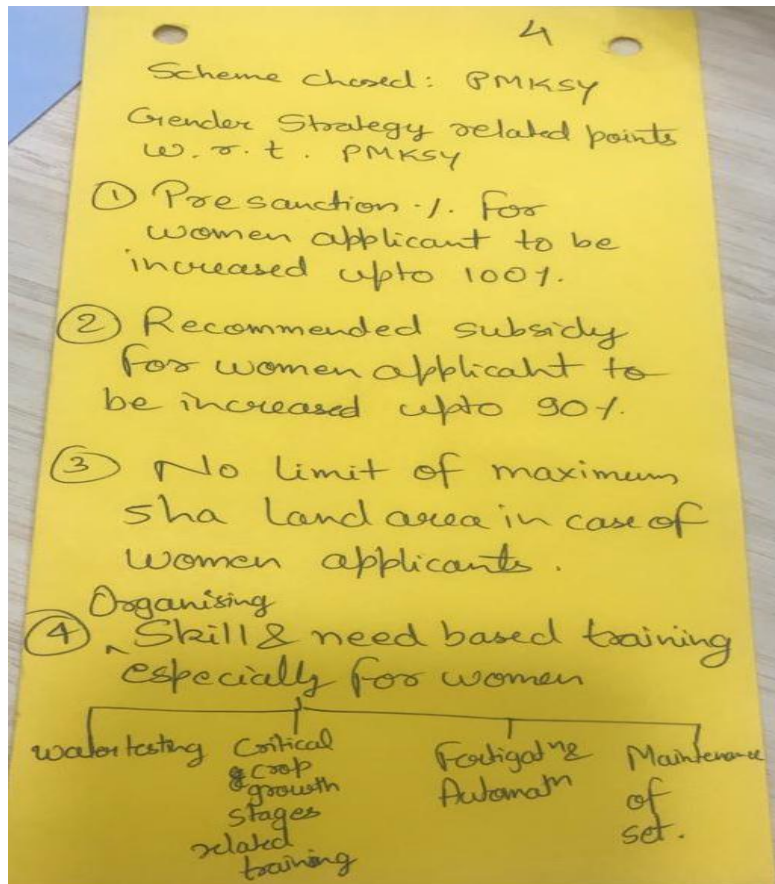 4
Scheme chosed: PMKSY
Gender Strategy related points
w.r.t. PMKSY
① Presanction ·/. for
women applicant to be
increased upto 100%.
② Recommended subsidy
for women applicant to
be increased upto 90%.
③ No limit of maximum
5ha land area in case of
women applicants.
Organising
④ ^ Skill & need based training
especially for women
Water testing
Critical
crop
growth
stages
related
training
Fertigatⁿ &
Automatⁿ
Maintenance
of
set.